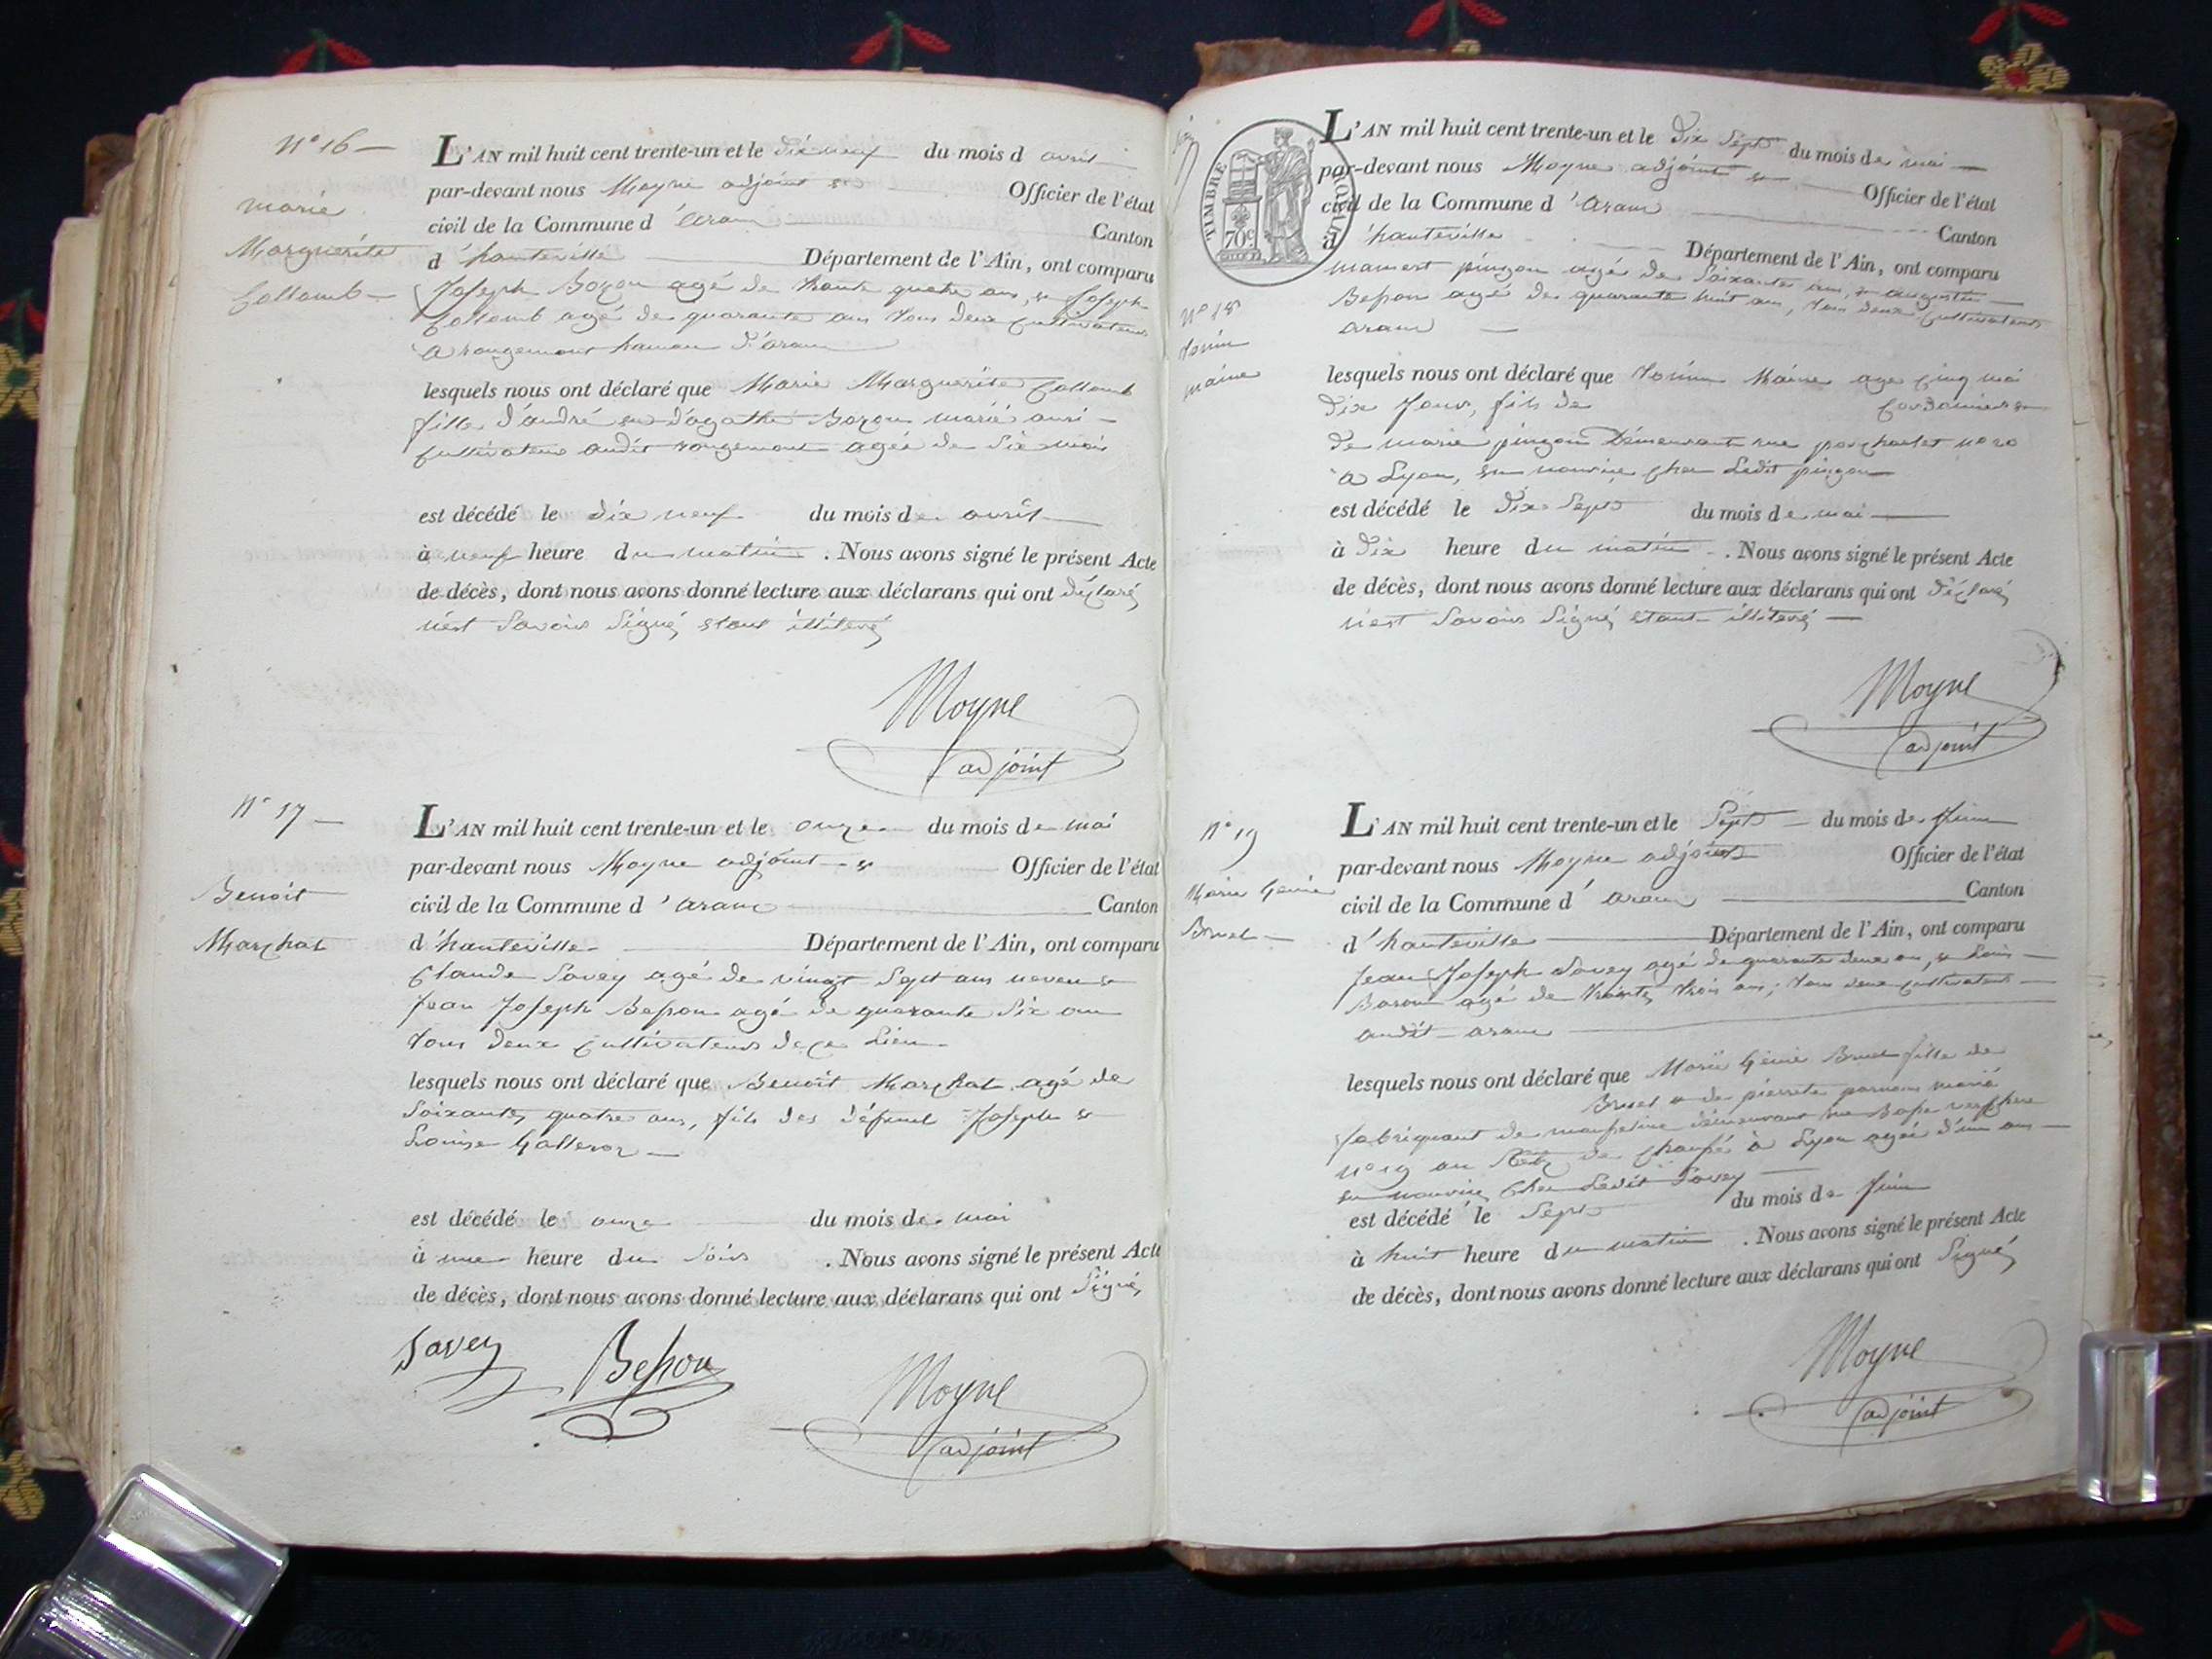 N° 16 —
marie
Marguerite
Collomb —
L'AN mil huit cent trente-un et le dix neuf du mois d avril
par-devant nous Moyne adjoint Officier de l'état
civil de la Commune d' aranc Canton
d' hauteville Département de l'Ain, ont comparu
Joseph Bozon agé de trante quatre ans, et Joseph
Collomb agé de quarante ans tous deux cultivateurs
a rougemont hamau d'aranc
lesquels nous ont déclaré que Marie Marguerite Collomb
fille d'andré et d'agathe Bozon marié aussi
cultivateurs audit rougemont agée de Six mois
est décédé le dix neuf du mois de avril
à neuf heure du matin . Nous avons signé le présent Acte
de décès, dont nous avons donné lecture aux déclarans qui ont déclaré
n'est Savoir Signé, étant illiteré
Moyne
adjoint
N° 17 —
Benoit
Marchat
L'AN mil huit cent trente-un et le onze du mois de mai
par-devant nous Moyne adjoint Officier de l'état
civil de la Commune d' aranc Canton
d' hauteville Département de l'Ain, ont comparu
Claude Savey agé de vingt Sept ans neveu et
Jean Joseph Besson agé de quarante Six ans
tous deux cultivateurs de ce Lieu
lesquels nous ont déclaré que Benoit Marchat agé de
Soixante quatre ans, fils des défunt Joseph et
Louise
est décédé le onze du mois de mai
à une heure du Soir . Nous avons signé le présent Acte
de décès, dont nous avons donné lecture aux déclarans qui ont Signé
Savey Besson Moyne
adjoint
TIMBRE ROYAL
70c
L'AN mil huit cent trente-un et le dix Sept du mois de mai —
par-devant nous Moyne adjoint Officier de l'état
civil de la Commune d' aranc Canton
d' hauteville Département de l'Ain, ont comparu
mamert pingon agé de Soixante ans, et augustin —
Besson agé de quarante huit ans, tous deux cultivateurs
aranc —
N° 18
maine
lesquels nous ont déclaré que Maine age cinq moi
dix Jours, fils de cordonnier et
de marie pingon Demeurant rue n° 20
a Lyon, en nourice chez Ledit pingon
est décédé le dix Sept du mois de mai
à dix heure du matin . Nous avons signé le présent Acte
de décès, dont nous avons donné lecture aux déclarans qui ont déclaré
n'est Savoir Signé, étant illiteré —
Moyne
adjoint
N° 19
Marie Génie
Bruel —
L'AN mil huit cent trente-un et le Sept du mois de Juin
par-devant nous Moyne adjoint Officier de l'état
civil de la Commune d' aranc Canton
d' hauteville Département de l'Ain, ont comparu
Jean Joseph Savey agé de quarante deux ans, et Louis —
agé de trante trois ans; tous deux cultivateurs —
audit aranc
lesquels nous ont déclaré que Marie Génie Bruel fille de
Bruel et de pierrete marié
fabriquant de mousseline demeurant rue
n° 19 au à Lyon agée d'un ans —
en nourice Chez Ledit Savey
est décédé le Sept du mois de Juin
à huit heure du matin . Nous avons signé le présent Acte
de décès, dont nous avons donné lecture aux déclarans qui ont Signé
Moyne
adjoint